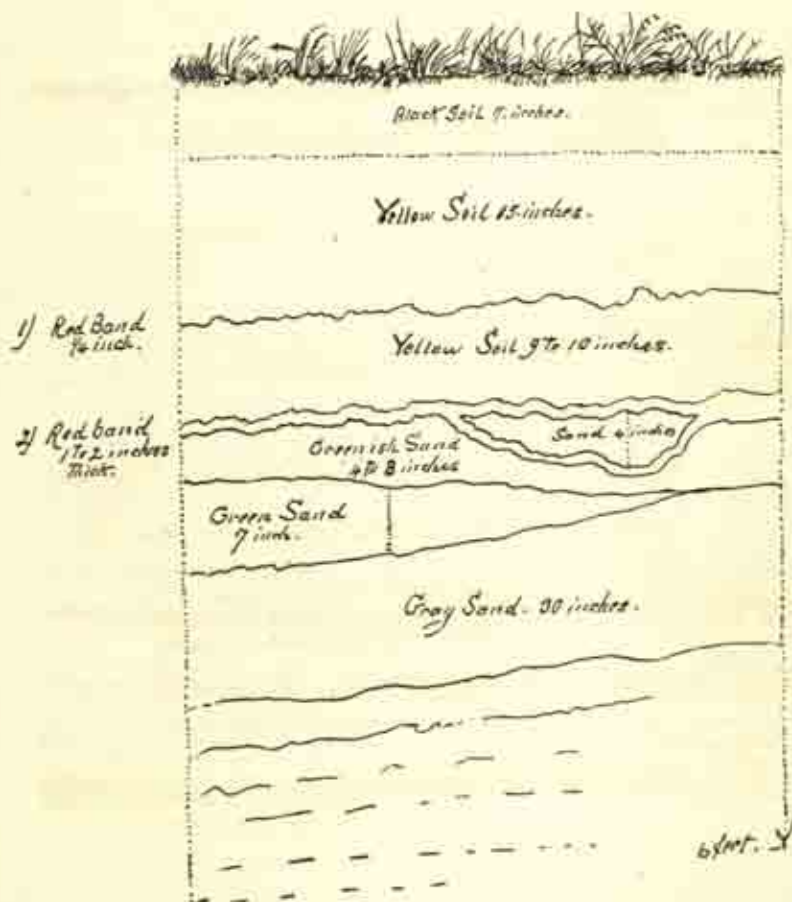 Black Soil 7. inches.
Yellow Soil 15 inches.
1) Red Band
1/4 inch.
Yellow Soil 9 to 10 inches.
2) Red band
1 to 2 inches
Thick.
Sand 4 inches
Greenish Sand
4 to 8 inches
Green Sand
7 inch.
Gray Sand - 30 inches.
6 feet.